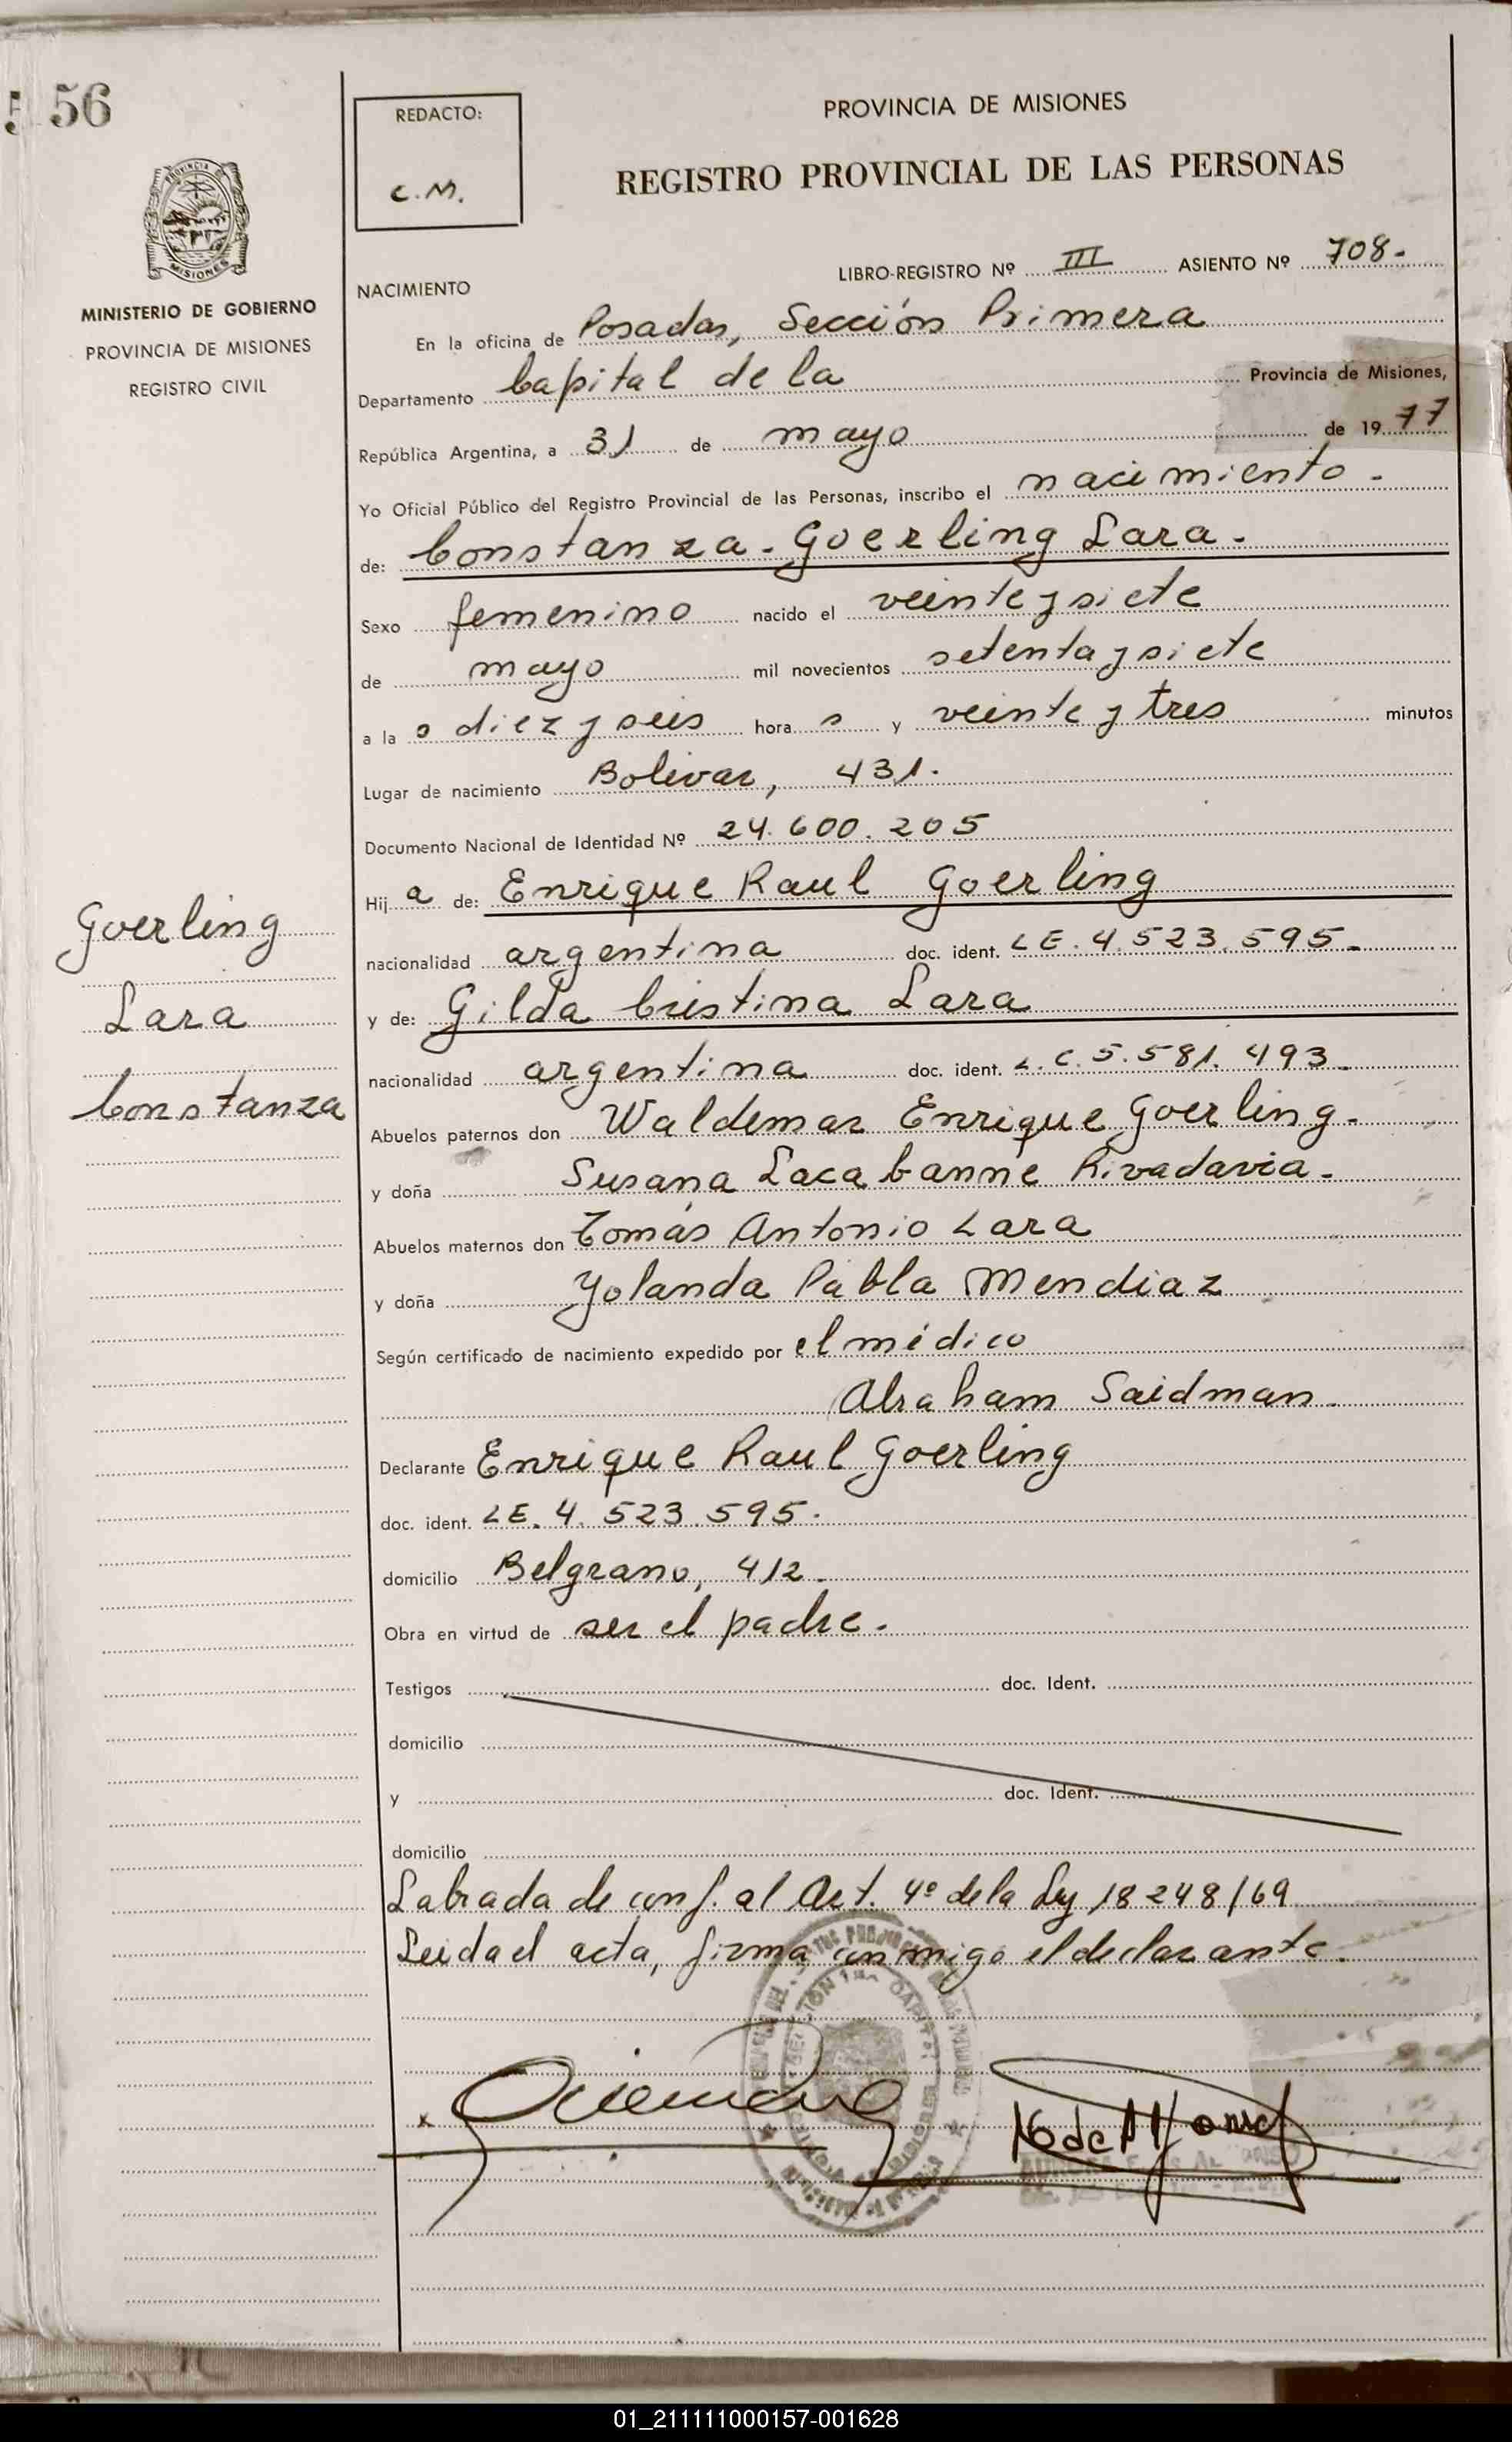 56
REDACTO:
C.M.
PROVINCIA DE MISIONES
REGISTRO PROVINCIAL DE LAS PERSONAS
MISIONES
MINISTERIO DE GOBIERNO
PROVINCIA DE MISIONES
REGISTRO CIVIL
LIBRO-REGISTRO Nº III ASIENTO Nº 708.-
NACIMIENTO
En la oficina de Posadas, Sección Primera
Departamento Capital de la Provincia de Misiones,
República Argentina, a 31 de mayo de 1977
Yo Oficial Público del Registro Provincial de las Personas, inscribo el nacimiento.-
de: Constanza-Goerling Lara.-
Sexo femenino nacido el veinte y siete
de mayo mil novecientos setenta y siete
a la s diez y seis hora s y veinte y tres minutos
Lugar de nacimiento Bolivar, 431.
Documento Nacional de Identidad Nº 24.600.205
Hij a de: Enrique Raul Goerling
nacionalidad argentina doc. ident. LE. 4.523.595.-
y de: Gilda Cristina Lara
nacionalidad argentina doc. ident. L.C. 5.581.493.-
Abuelos paternos don Waldemar Enrique Goerling.-
y doña Susana Lacabanne Rivadavia.-
Abuelos maternos don Tomás Antonio Lara
y doña Yolanda Pabla Mendiaz
Según certificado de nacimiento expedido por el médico
Abraham Saidman.
Declarante Enrique Raul Goerling
doc. ident. LE. 4.523.595.
domicilio Belgrano, 412.-
Obra en virtud de ser el padre.-
Testigos doc. Ident.
domicilio
y doc. Ident.
domicilio
Labrada de conf. al Art. 4º de la Ley 18248/69
Leida el acta, firma conmigo el declarante.
Goerling
Lara
Constanza
01_211111000157-001628